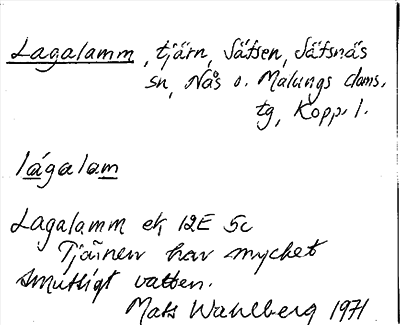 Lagalamm, tjärn, Säfsen, Säfsnäs
sn, Nås o. Malungs doms.
tg, Kopp. l.
lágalam
Lagalamm ek 12E 5c
Tjärnen har mycket
smutligt vatten.
Mats Wahlberg 1971